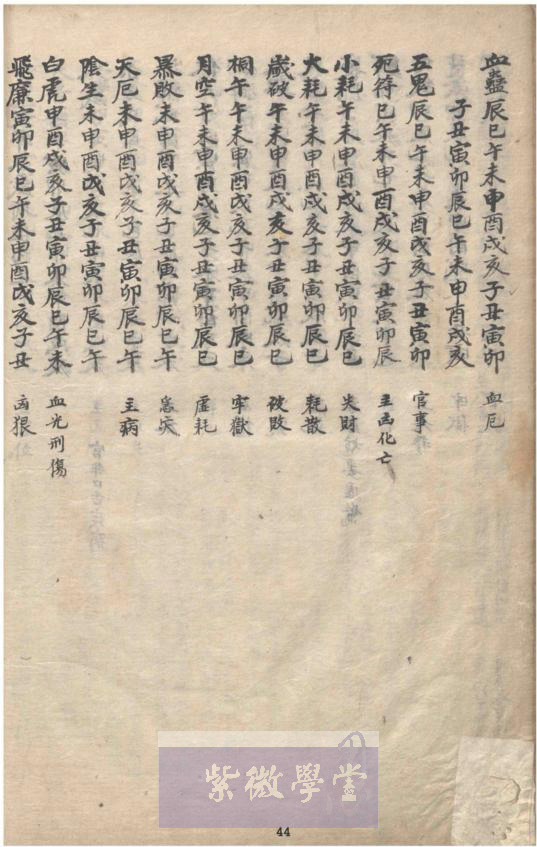 血蠱辰巳午未申酉戌亥子丑寅卯 血厄
子丑寅卯辰巳午未申酉戌亥
五鬼辰巳午未申酉戌亥子丑寅卯 官事
死符巳午未申酉戌亥子丑寅卯辰 主凶化亡
小耗午未申酉戌亥子丑寅卯辰巳 失財
大耗午未申酉戌亥子丑寅卯辰巳 耗散
歲破午未申酉戌亥子丑寅卯辰巳 破敗
桐午午未申酉戌亥子丑寅卯辰巳 牢獄
月空午未申酉戌亥子丑寅卯辰巳 虛耗
暴敗未申酉戌亥子丑寅卯辰巳午
天厄未申酉戌亥子丑寅卯辰巳午 主病
陰生未申酉戌亥子丑寅卯辰巳午
白虎申酉戌亥子丑寅卯辰巳午未 血光刑傷
飛廉寅卯辰巳午未申酉戌亥子丑 凶狠
紫微學堂
44